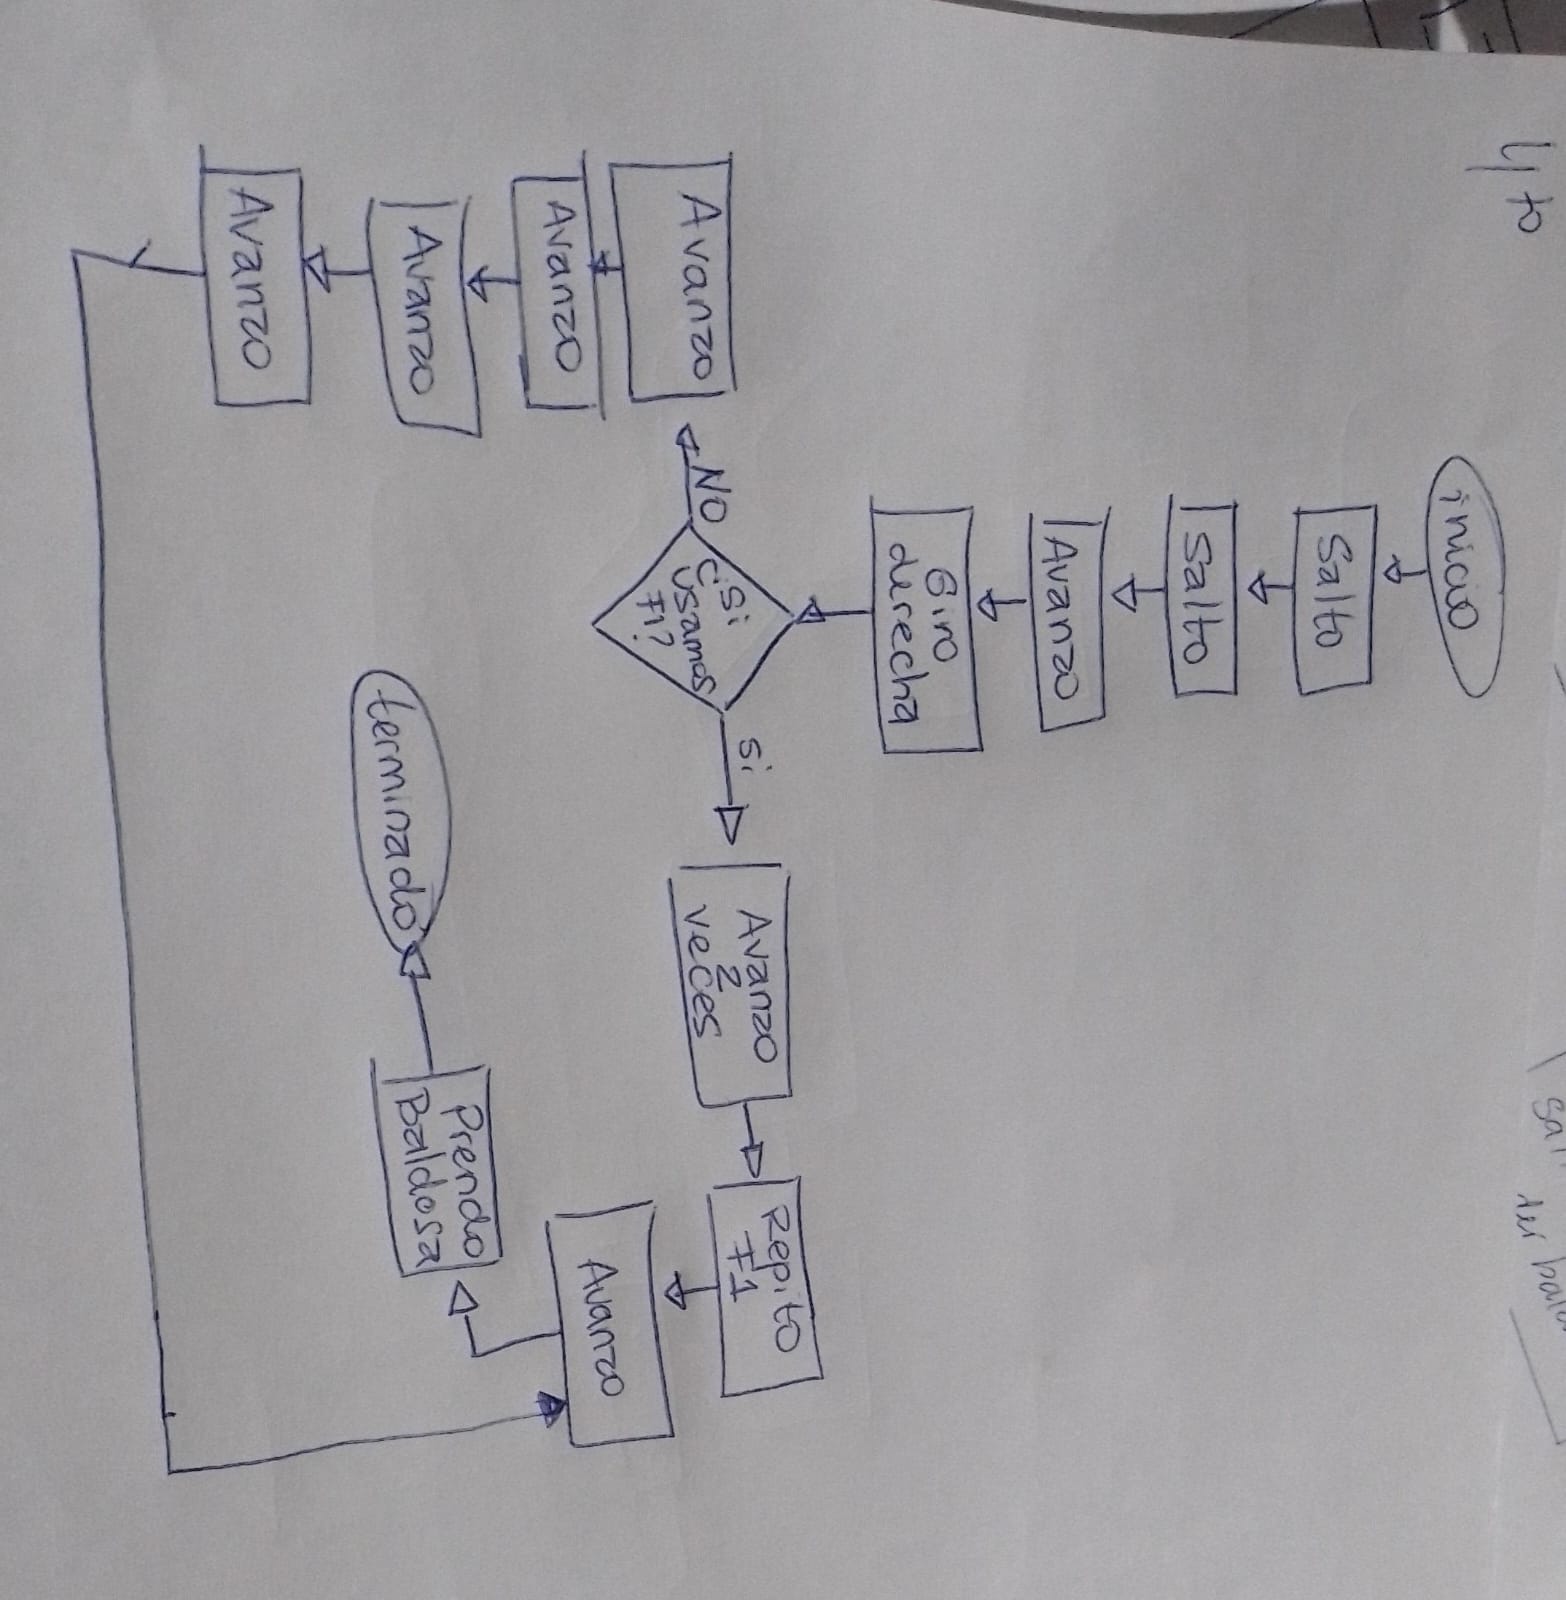 4to
inicio
Salto
Salto
Avanzo
Giro
derecha
¿Si
usamos
F1?
NO
Si
Avanzo
Avanzo
Avanzo
Avanzo
Avanzo
2
veces
Repito
F1
Avanzo
Prendo
Baldosa
terminado